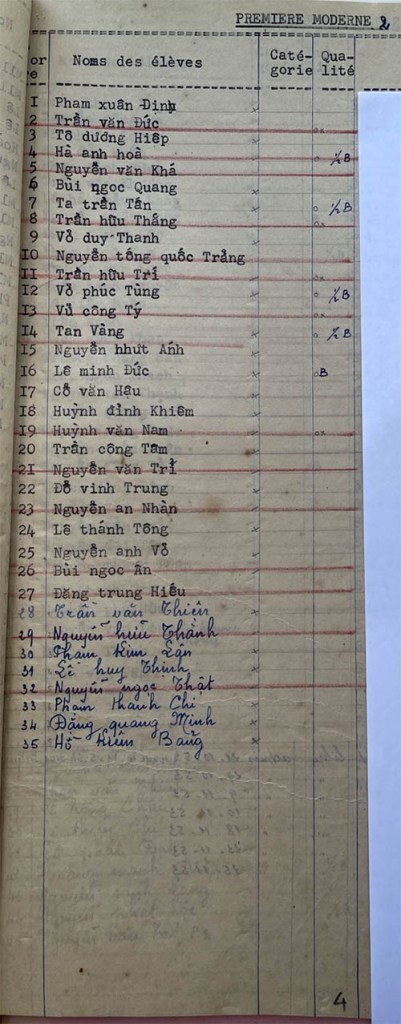 PREMIERE MODERNE 2
Noms des élèves Caté- Qua-
gorie lité
I Pham xuân Định x
2 Trần văn Đức ox
3 Tô dương Hiệp
4 Hà anh hoà o ½B
5 Nguyễn văn Khá
6 Bùi ngọc Quang x
7 Ta trần Tấn o ½B
8 Trần hữu Thắng ox
9 Vỏ duy Thanh x
IO Nguyễn tống quốc Trảng
II Trần hữu Trí ox
I2 Vỏ phúc Tùng x o ½B
I3 Vủ công Tý ox
I4 Tan Vàng x o ½B
I5 Nguyễn nhứt Anh x
I6 Lê minh Đức x oB
I7 Cỗ văn Hậu x
I8 Huỳnh đình Khiêm x
I9 Huỳnh văn Nam x ox
20 Trần công Tâm x
2I Nguyễn văn Trỉ x
22 Đỗ vinh Trung x
23 Nguyễn an Nhàn x
24 Lê thánh Tông x
25 Nguyễn anh Vỏ x
26 Bùi ngọc Ân x
27 Đặng trung Hiếu x
28 Trần văn Thiện x
29 Nguyễn hữu Thành x
30 Phạm Kim Lân x
31 Lê huy Thịnh x
32 Nguyễn ngọc Thật x
33 Phạm thành Chi x
34 Đặng quang Minh x
35 Hồ Kiên Bằng x
4